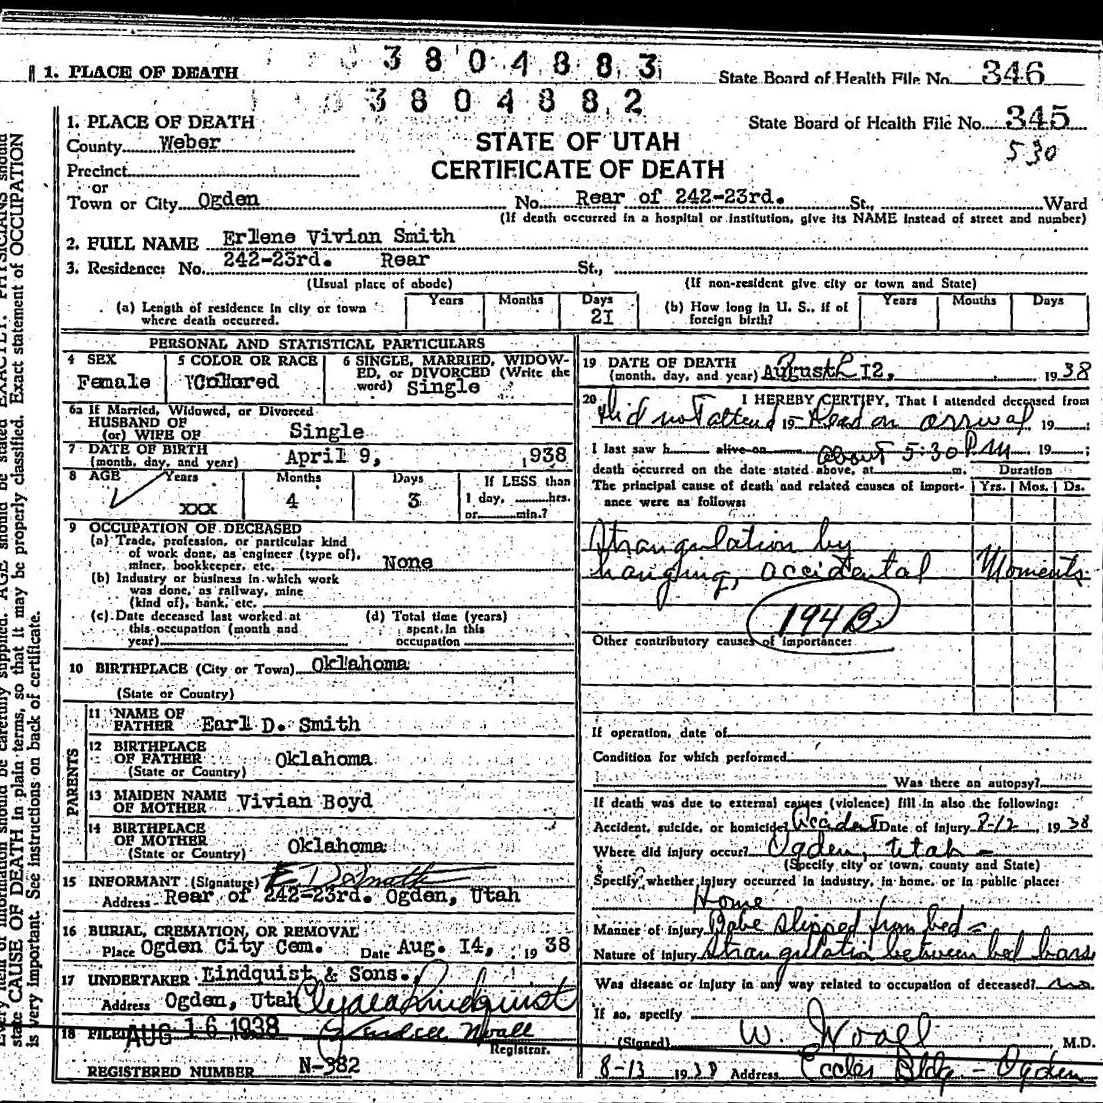 3804883
1. PLACE OF DEATH State Board of Health File No. 346
3804882
1. PLACE OF DEATH State Board of Health File No. 345
County Weber STATE OF UTAH 530
Precinct CERTIFICATE OF DEATH
or
Town or City Ogden No. Rear of 242-23rd. St., Ward
(If death occurred in a hospital or institution, give its NAME instead of street and number)
2. FULL NAME Erlene Vivian Smith
3. Residence: No. 242-23rd. Rear St.,
(Usual place of abode) (If non-resident give city or town and State)
(a) Length of residence in city or town where death occurred. Years Months Days 21 (b) How long in U. S., if of foreign birth? Years Months Days
PERSONAL AND STATISTICAL PARTICULARS
4 SEX Female
5 COLOR OR RACE Colored
6 SINGLE, MARRIED, WIDOWED, or DIVORCED (Write the word) Single
6a If Married, Widowed, or Divorced
HUSBAND OF
(or) WIFE OF Single
7 DATE OF BIRTH
(month, day, and year) April 9, 1938
8 AGE Years Months Days If LESS than
xxx 4 3 1 day, hrs.
or min.?
9 OCCUPATION OF DECEASED
(a) Trade, profession, or particular kind
of work done, as engineer (type of),
miner, bookkeeper, etc. None
(b) Industry or business in which work
was done, as railway, mine
(kind of), bank, etc.
(c) Date deceased last worked at
this occupation (month and
year)
(d) Total time (years)
spent in this
occupation
10 BIRTHPLACE (City or Town) Oklahoma
(State or Country)
PARENTS
11 NAME OF
FATHER Earl D. Smith
12 BIRTHPLACE
OF FATHER Oklahoma
(State or Country)
13 MAIDEN NAME
OF MOTHER Vivian Boyd
14 BIRTHPLACE
OF MOTHER Oklahoma
(State or Country)
15 INFORMANT (Signature) E D Smith
Address Rear of 242-23rd. Ogden, Utah
16 BURIAL, CREMATION, OR REMOVAL
Place Ogden City Cem. Date Aug. 14, 1938
17 UNDERTAKER Lindquist & Sons.
Address Ogden, Utah Clyde Lindquist
18 FILED AUG 16 1938
Registrar.
REGISTERED NUMBER N-382
19 DATE OF DEATH
(month, day, and year) August 12, 1938
20 I HEREBY CERTIFY, That I attended deceased from
Did not attend 19 Dead on arrival 19
I last saw h alive on about 5:30 P.M 19
death occurred on the date stated above, at m. Duration
The principal cause of death and related causes of importance were as follows: Yrs. Mos. Ds.
Strangulation by
hanging, accidental Moments
194B
Other contributory causes of importance:
If operation, date of
Condition for which performed
Was there an autopsy?
If death was due to external causes (violence) fill in also the following:
Accident, suicide, or homicide? Accident Date of injury 8-12, 1938
Where did injury occur? Ogden, Utah
(Specify city or town, county and State)
Specify whether injury occurred in industry, in home, or in public place:
Home
Manner of injury Babe slipped from bed
Nature of injury Strangulation between bed bars
Was disease or injury in any way related to occupation of deceased? no
If so, specify
(Signed) W. Woall M.D.
8-13 1938 Address Eccles Bldg - Ogden
state CAUSE OF DEATH in plain terms, so that it may be properly classified. Exact statement of OCCUPATION
is very important. See instructions on back of certificate.